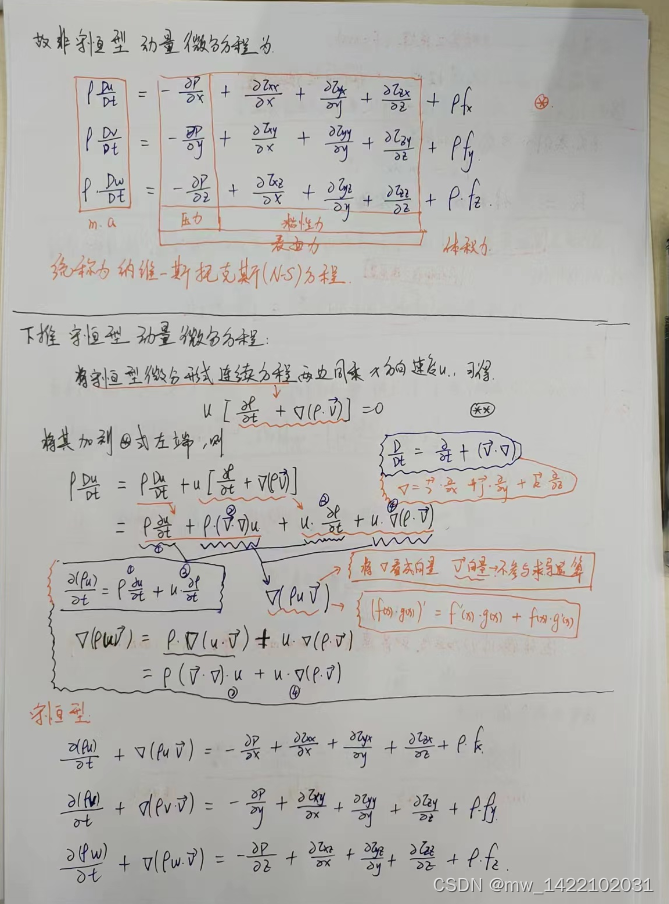 故非守恒型 动量微分方程为
ρ Du/Dt = - ∂P/∂x + ∂τxx/∂x + ∂τyx/∂y + ∂τzx/∂z + ρfx ⊛
ρ Dv/Dt = - ∂P/∂y + ∂τxy/∂x + ∂τyy/∂y + ∂τzy/∂z + ρfy
ρ·Dw/Dt = - ∂P/∂z + ∂τxz/∂x + ∂τyz/∂y + ∂τzz/∂z + ρ·fz.
m.a 压力 粘性力
表面力 体积力
统称为纳维-斯托克斯(N-S)方程.
下推 守恒型 动量微分方程:
将守恒型微分形式连续方程两边同乘x方向速度u, 可得
u [ ∂ρ/∂t + ∇(ρ·V⃗) ] = 0 (**)
将其加到⊛式左端, 则
D/Dt = ∂/∂t + (V⃗·∇)
ρ Du/Dt = ρ Du/Dt + u [ ∂ρ/∂t + ∇(ρV⃗) ]
∇ = i⃗·∂/∂x + j⃗·∂/∂y + k⃗ ∂/∂z
= ρ ∂u/∂t + ρ·(V⃗·∇)u + u·∂ρ/∂t + u·∇(ρV⃗)
① ② ③ ④
∂(ρu)/∂t = ρ ∂u/∂t + u·∂ρ/∂t
① ③
∇(ρuV⃗)
将∇看去向量 V⃗向量→不参与求导运算
(f(x)·g(x))' = f'(x)·g(x) + f(x)·g'(x)
∇(ρuV⃗) = ρ·∇(u·V⃗) + u·∇(ρ·V⃗)
= ρ(V⃗·∇)·u + u·∇(ρ·V⃗)
② ④
守恒型
∂(ρu)/∂t + ∇(ρuV⃗) = - ∂P/∂x + ∂τxx/∂x + ∂τyx/∂y + ∂τzx/∂z + ρ·fx
∂(ρv)/∂t + ∇(ρv·V⃗) = - ∂P/∂y + ∂τxy/∂x + ∂τyy/∂y + ∂τzy/∂z + ρ·fy
∂(ρw)/∂t + ∇(ρw·V⃗) = - ∂P/∂z + ∂τxz/∂x + ∂τyz/∂y + ∂τzz/∂z + ρ·fz
CSDN @mw_1422102031